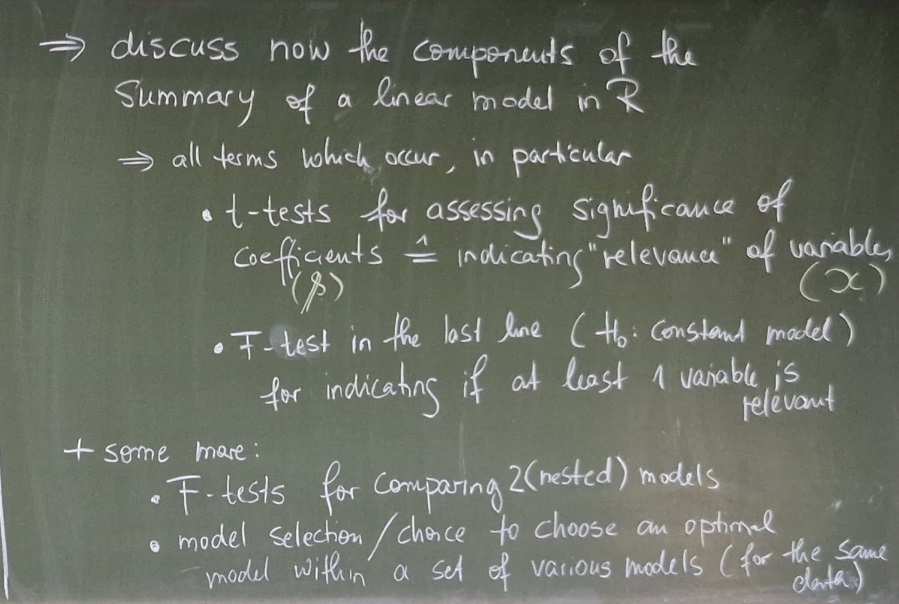 ⇒ discuss now the components of the
Summary of a linear model in R
⇒ all terms which occur, in particular
• t-tests for assessing significance of
coefficients ≙ indicating "relevance" of variables
(β) (x)
• F-test in the last line (H₀: constant model)
for indicating if at least 1 variable is
relevant
+ some more:
• F-tests for comparing 2(nested) models
• model selection/choice to choose an optimal
model within a set of various models (for the same
data)